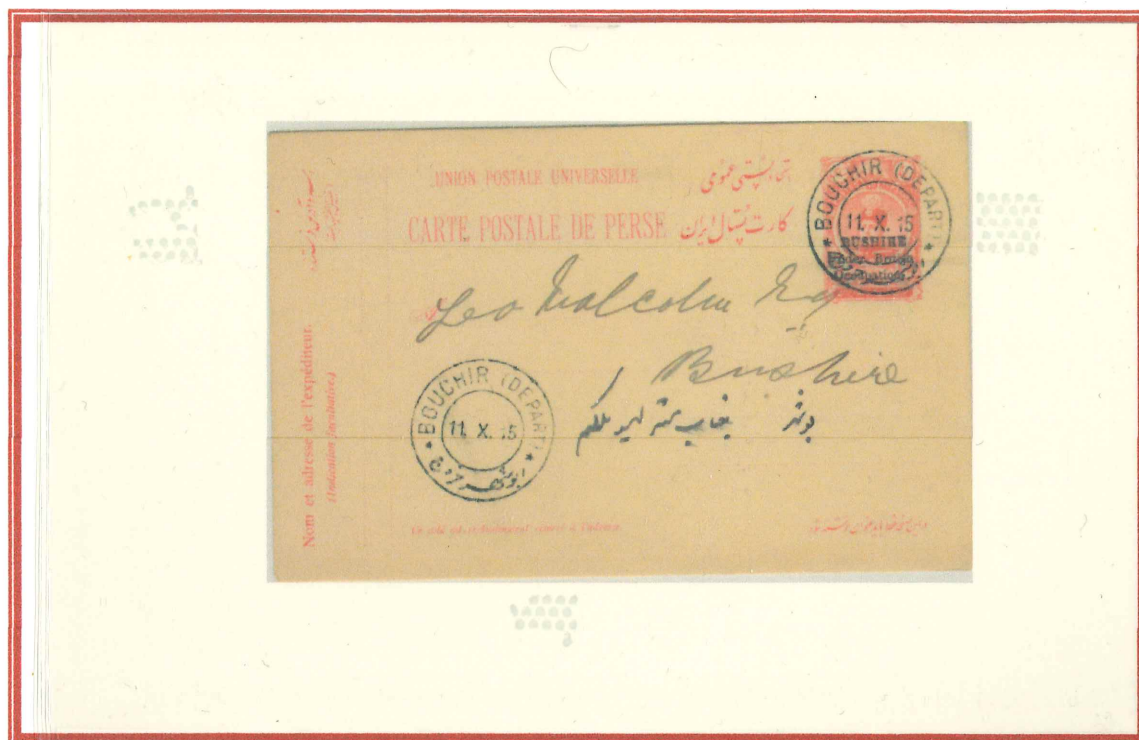 UNION POSTALE UNIVERSELLE
CARTE POSTALE DE PERSE کارت پستال ایران
BOUCHIR (DEPART)
11. X. 15
BUSHIRE
Under British
Occupation
بوشهر
Leo Malcolm Esq
Bushire
بوشهر
BOUCHIR (DEPART)
11. X. 15
بوشهر
Nom et adresse de l'expéditeur.
(Indication facultative)
Ce côté est exclusivement réservé à l'adresse.